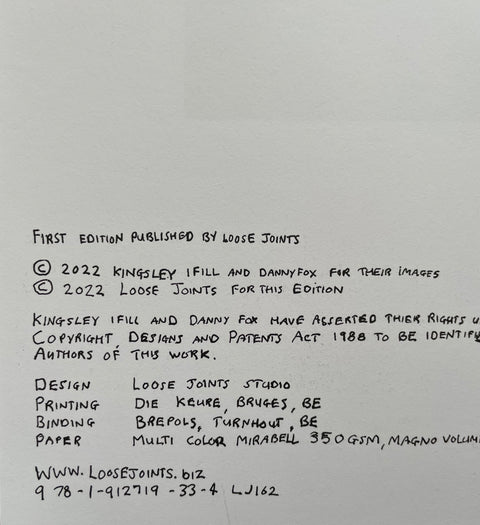 FIRST EDITION PUBLISHED BY LOOSE JOINTS
© 2022 KINGSLEY IFILL AND DANNY FOX FOR THEIR IMAGES
© 2022 LOOSE JOINTS FOR THIS EDITION
KINGSLEY IFILL AND DANNY FOX HAVE ASSERTED THIER RIGHTS
COPYRIGHT, DESIGNS AND PATENTS ACT 1988 TO BE
AUTHORS OF THIS WORK.
DESIGN LOOSE JOINTS STUDIO
PRINTING DIE KEURE, BRUGES, BE
BINDING BREPOLS, TURNHOUT, BE
PAPER MULTI COLOR MIRABELL 350GSM, MAGNO
WWW.LOOSEJOINTS.BIZ
9 78-1-912719-33-4 LJ162